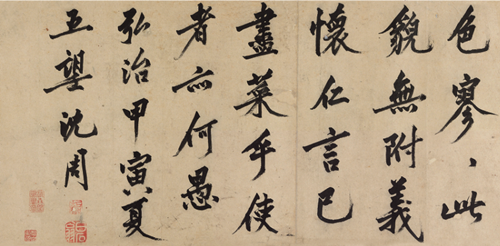 色寥、此
貌無附義
懷仁言已
盡菜乎使
者亦何愚
弘治甲寅夏
五望沈周